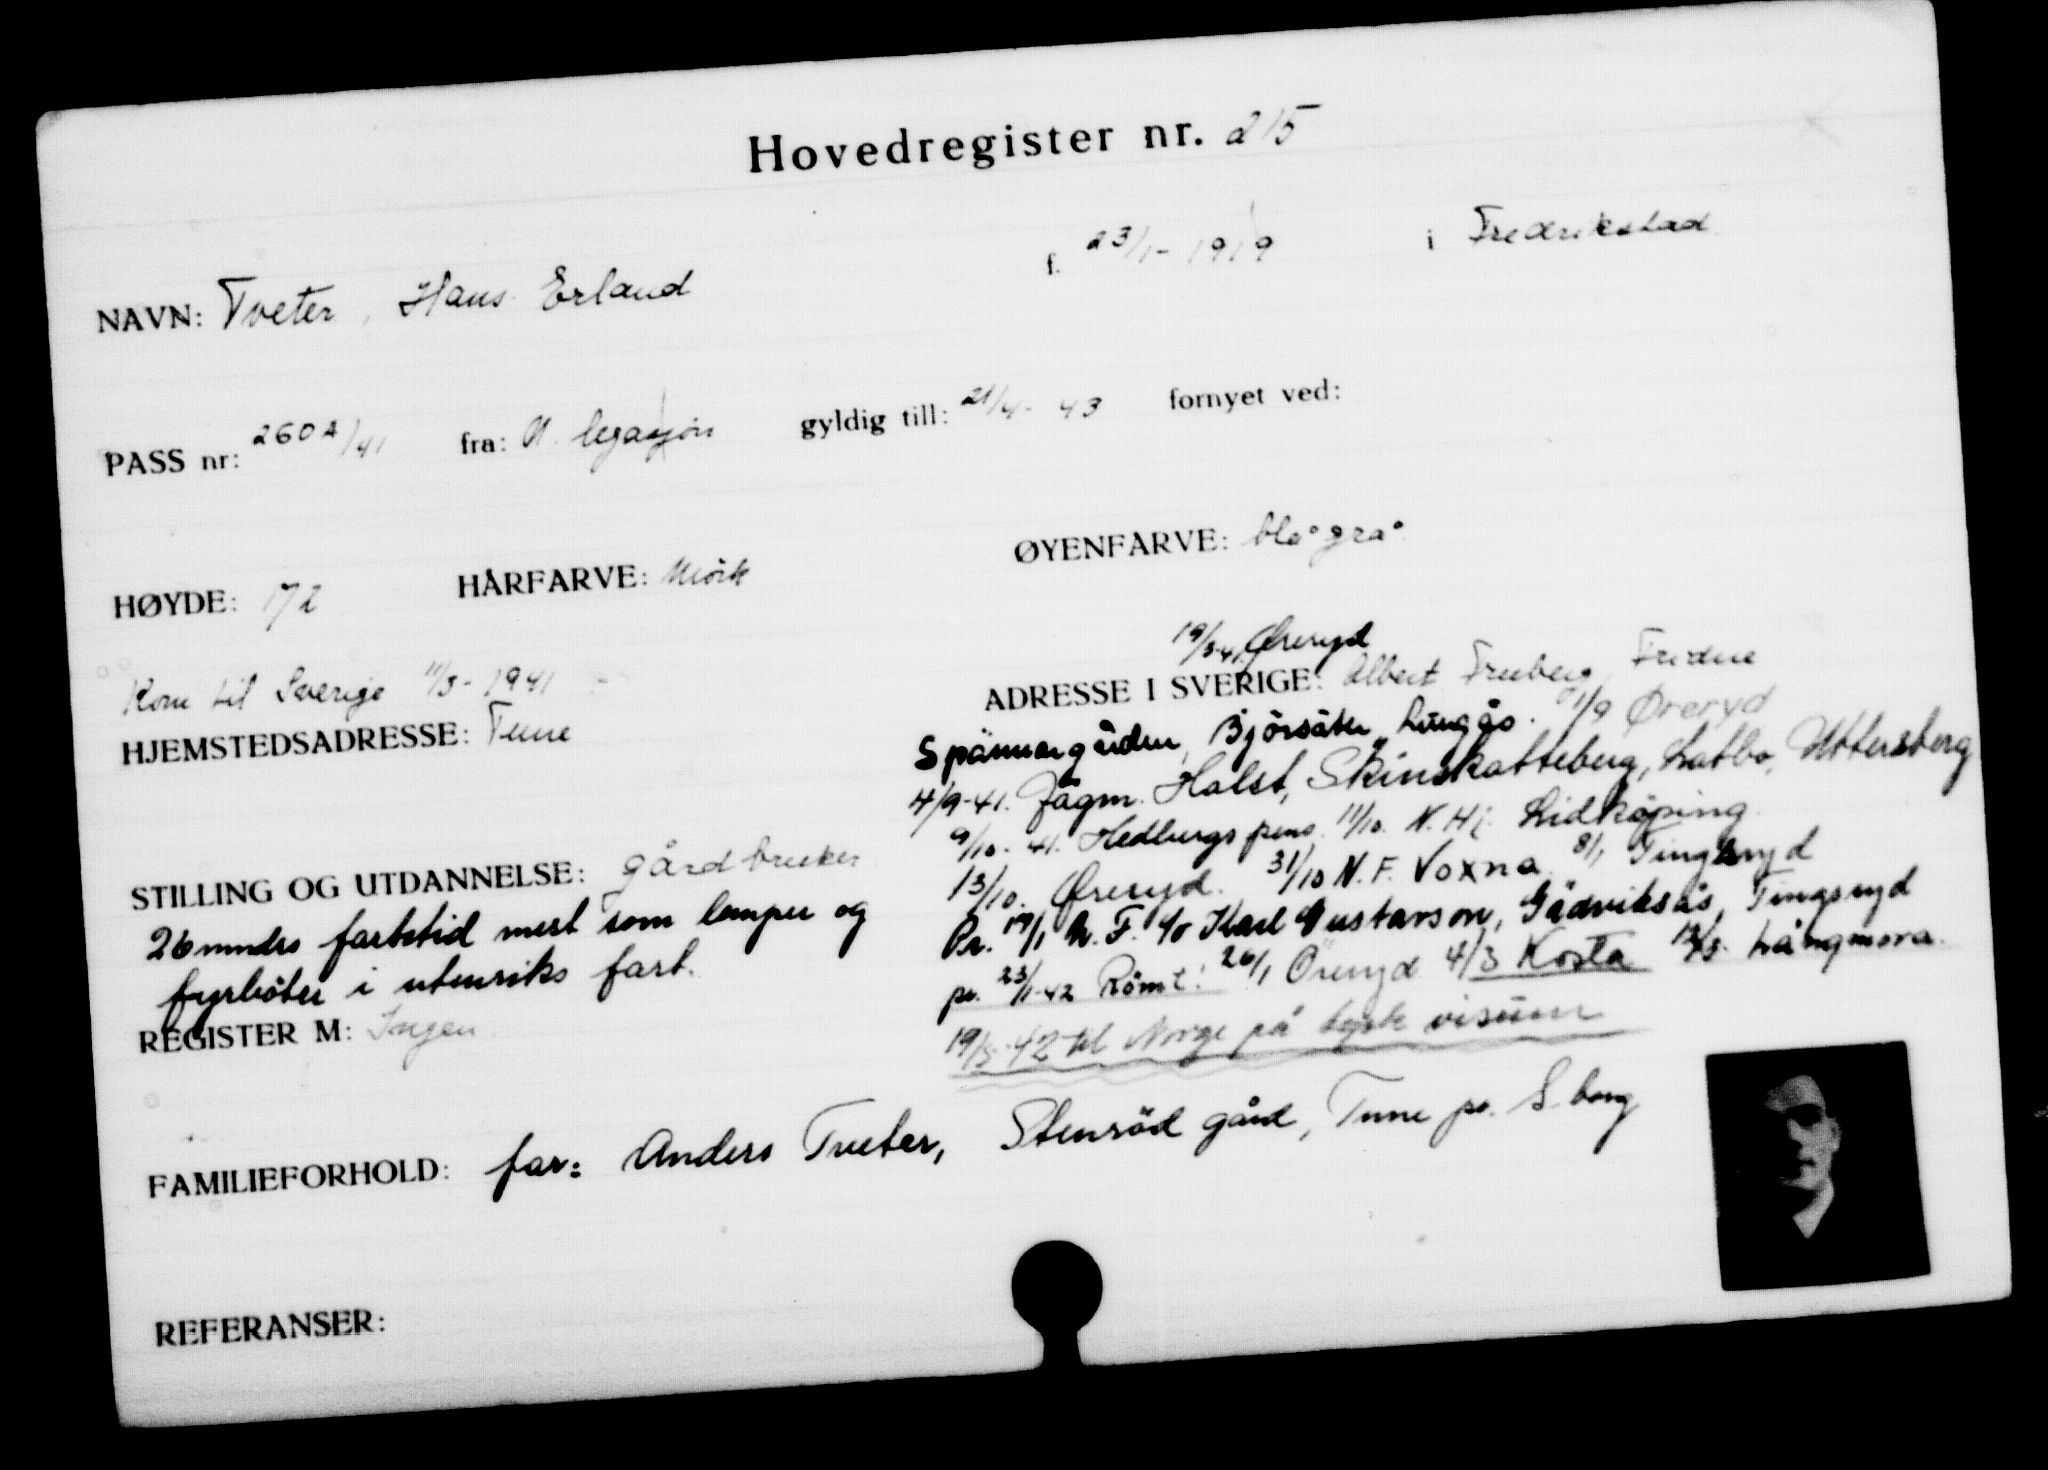 Hovedregister nr. 215
NAVN: Tveter, Hans Erland f. 23/1-1919 i Fredrikstad
PASS nr: 2602/41 fra: N. legasjon gyldig till: 21/4-43 fornyet ved:
HØYDE: 172 HÅRFARVE: Mörk ØYENFARVE: blågrå
Kom til Sverige 11/3-1941
HJEMSTEDSADRESSE: Tune
STILLING OG UTDANNELSE: gårdbruker
26 mndrs fartstid mest som lemper og
fyrböter i utenriks fart.
REGISTER M: Ingen
19/3-41 Øreryd
ADRESSE I SVERIGE: Albert Friberg, Fridene
Spännargården, Björsäter, Lugnås. 1/9 Øreryd
4/9-41. Jägm. Halst, Skinskatteberg, Latbo, Uttersberg
9/10-41. Hedbergs pens. 11/10. N. Hj. Lidköping
13/10. Øreryd. 31/10 N. F. Voxna 8/1 Tingsryd
Pr. 17/1 N. F. c/o Karl Gustavson, Gädviksås, Tingsryd
pr. 23/1-42 Römt! 26/1 Öreryd 4/3 Kosta Långmora.
19/5-42 til Norge på tysk visum
FAMILIEFORHOLD: far: Anders Tveter, Stenröd gård, Tune pr. S.borg
REFERANSER: